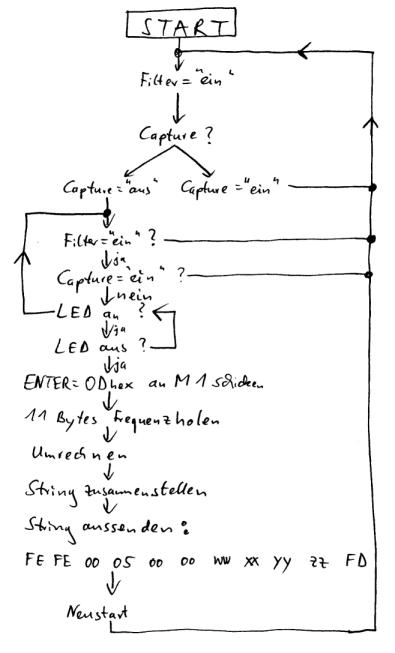 START
Filter = "ein"
Capture ?
Capture = "aus" Capture = "ein"
Filter = "ein" ?
ja
Capture = "ein" ?
nein
LED an ?
ja
LED aus ?
ja
ENTER = ODhex an M1 schicken
11 Bytes Frequenz holen
Umrechnen
String zusammenstellen
String aussenden :
FE FE 00 05 00 00 WW XX YY ZZ FD
Neustart